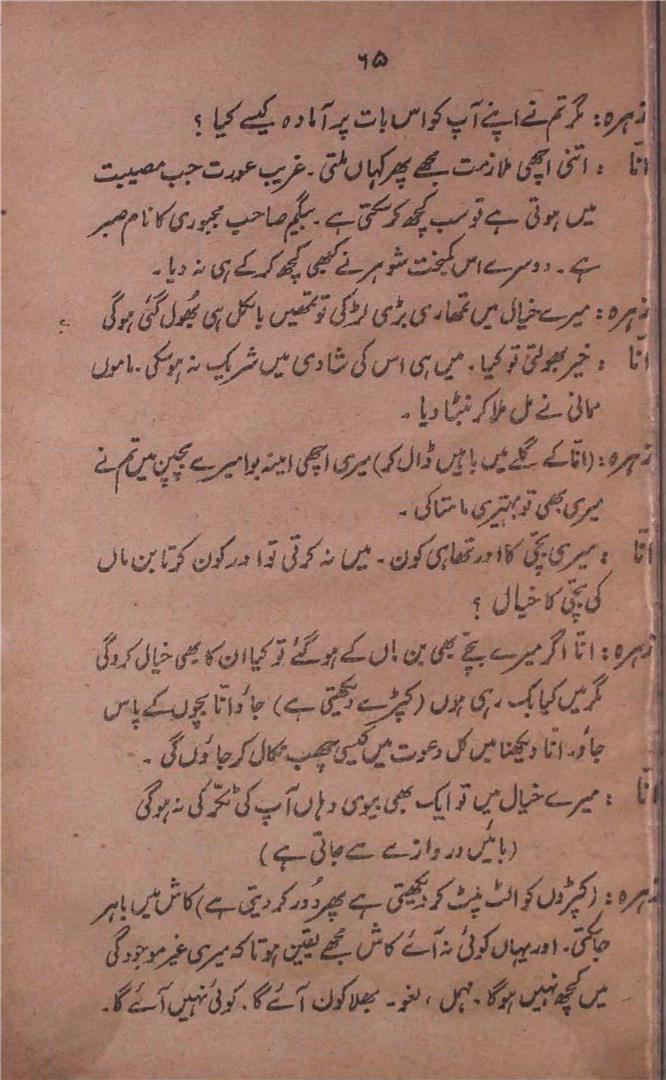 ۶۵
زہرہ: مگر تم نے اپنے آپ کو اس بات پر آمادہ کیسے کیا ؟
انّا : اتنی اچھی ملازمت مجھے پھر کہاں ملتی ۔ غریب عورت جب مصیبت
میں ہوتی ہے تو سب کچھ کر سکتی ہے ۔ بیگم صاحب مجبوری کا نام صبر
ہے ۔ دوسرے اس کمبخت شوہر نے کبھی کچھ کر کے ہی نہ دیا ۔
زہرہ: میرے خیال میں تمھاری بڑی لڑکی تو تمھیں بالکل ہی بھُول گئی ہوگی ؟
انّا : خیر بھولتی تو کیا ۔ میں ہی اس کی شادی میں شریک نہ ہوسکی ۔ ماموں
ممانی نے مل ملا کر نبٹا دیا ۔
زہرہ: (انّا کے گلے میں باہیں ڈال کر) میری اچھی امینہ بوا میرے بچپن میں تم نے
میری بھی تو بہتیری مامتا کی ۔
انّا : میری بچّی کا اور تھا ہی کون ۔ میں نہ کرتی تو اور کون کرتا بن ماں
کی بچّی کا خیال ؟
زہرہ: انّا اگر میرے بچّے بھی بن ماں کے ہو گئے تو کیا ان کا بھی خیال کروگی
مگر میں کیا بک رہی ہوں (کپڑے دیکھتی ہے) جاؤ انّا بچّوں کے پاس
جاؤ۔ انّا دیکھنا میں کل دعوت میں کیسی چھب نکال کر جاؤں گی ۔
انّا : میرے خیال میں تو ایک بھی بیوی وہاں آپ کی ٹکّر کی نہ ہوگی
(بائیں دروازے سے جاتی ہے)
زہرہ: (کپڑوں کو الٹ پلٹ کر دیکھتی ہے پھر دُور کر دیتی ہے) کاش میں باہر
جا سکتی۔ اور یہاں کوئی نہ آئے کاش مجھے یقین ہوتا کہ میری غیر موجودگی
میں کچھ نہیں ہوگا ۔ مہمل ، لغو ۔ بھلا کون آئے گا ۔ کوئی نہیں آئے گا ۔